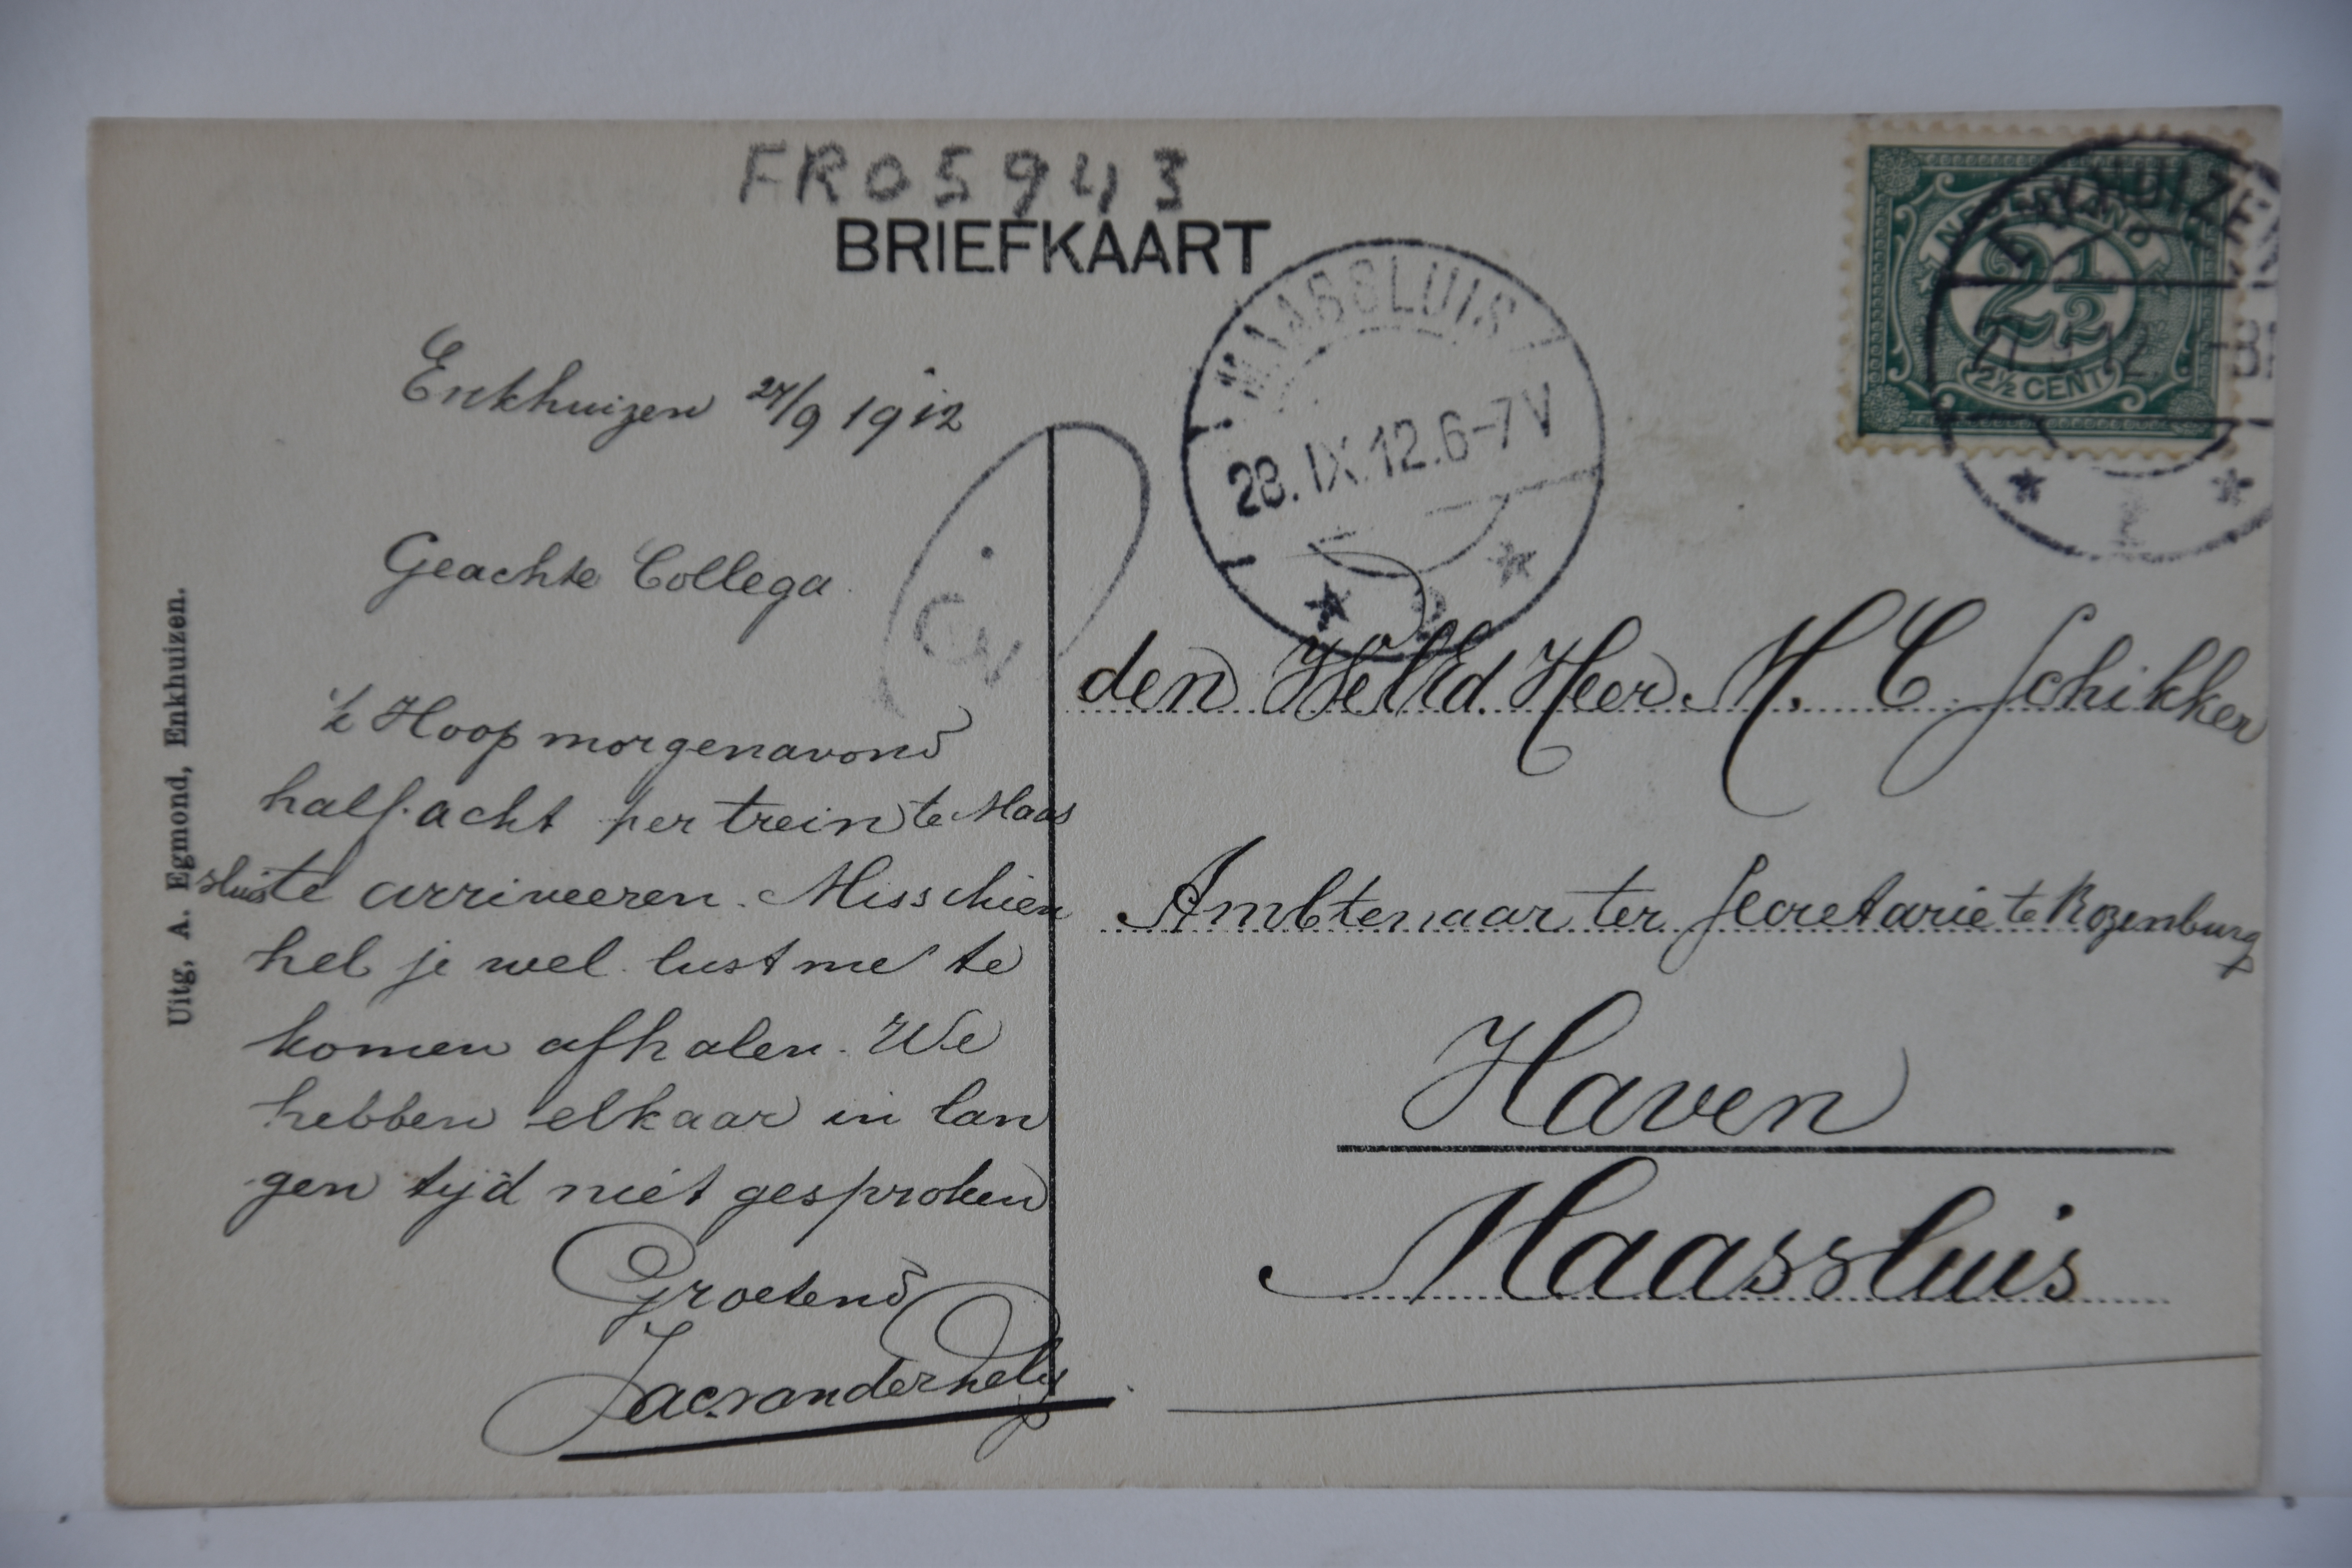 FR05943
BRIEFKAART
Enkhuizen 27/9 1912
Geachte Collega
'k Hoop morgenavond
half acht per trein te Maas
sluis te arriveeren. Misschien
heb je wel lust me te
komen afhalen. We
hebben elkaar in lan
gen tijd niet gesproken
Groetend
Jac. van der
Uitg. A. Egmond, Enkhuizen.
MAASSLUIS
28.IX.12.6-7V
2
ENKHUIZEN
NEDERLAND
2 1/2
2½ CENT
1
den WelEd. Heer M. C. Schikker
Ambtenaar ter Secretarie te Rozenburg
Haven
Maassluis